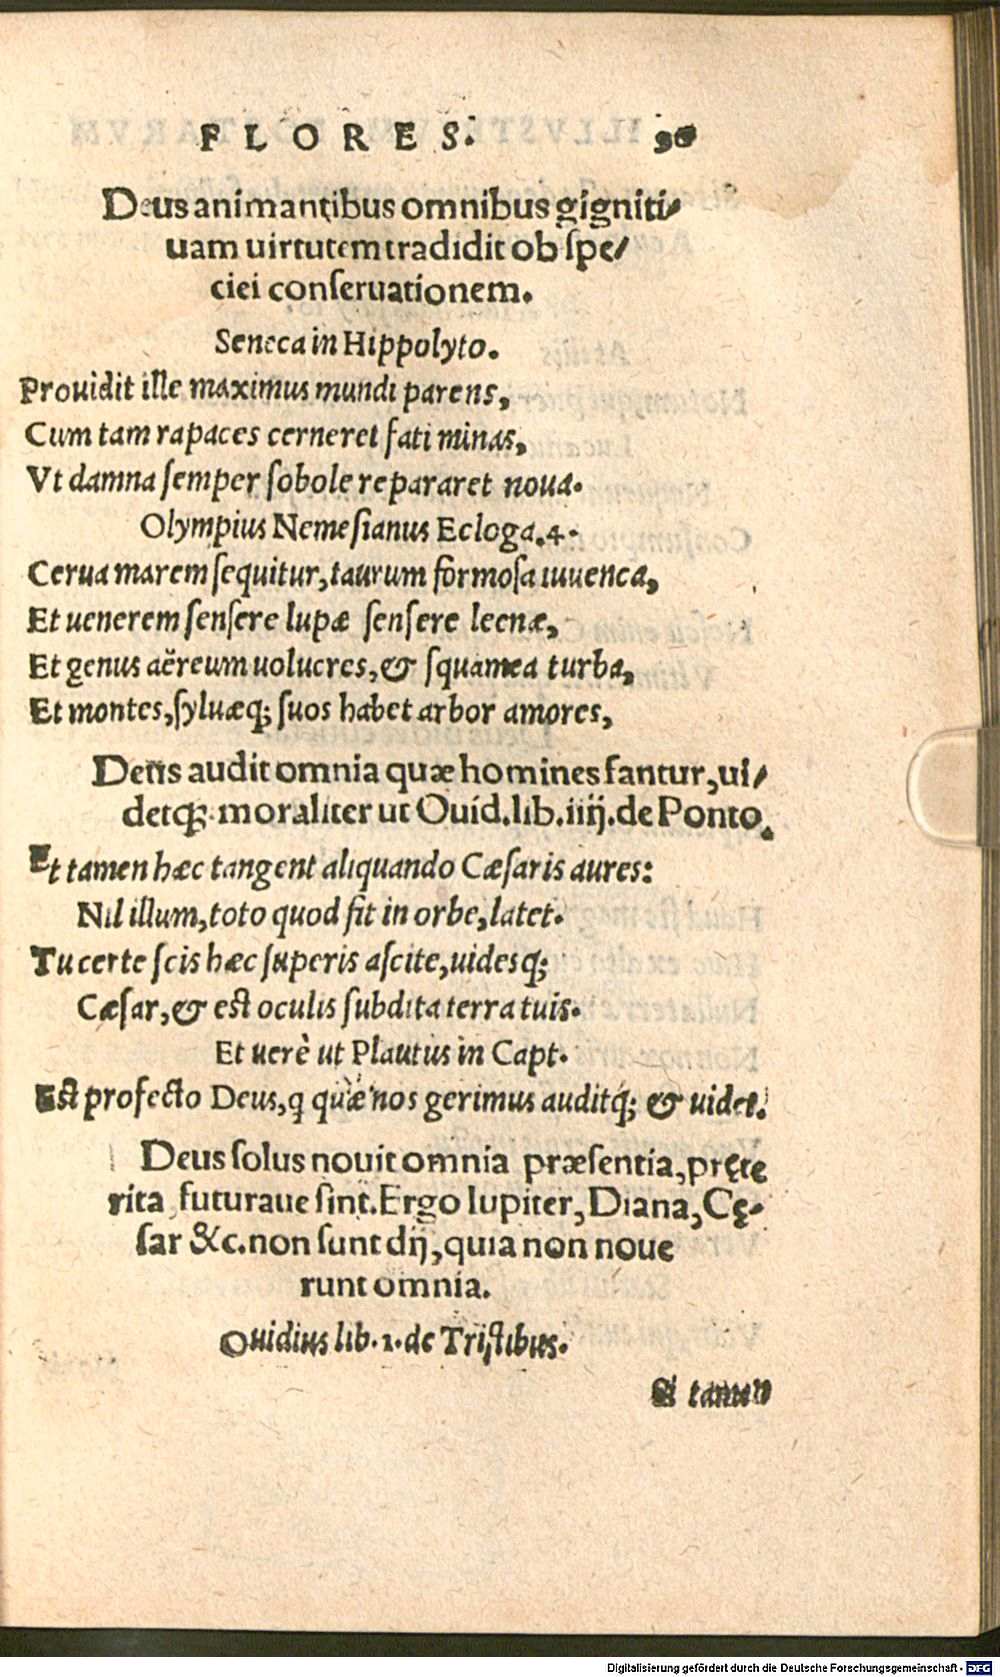 FLORES. 90
Deus animantibus omnibus gigniti⸗
uam uirtutem tradidit ob ſpe⸗
ciei conſeruationem.
Seneca in Hippolyto.
Prouidit ille maximus mundi parens,
Cum tam rapaces cerneret fati minas,
Vt damna ſemper ſobole repararet noua.
Olympius Nemeſianus Ecloga.4.
Cerua marem ſequitur, taurum formoſa iuuenca,
Et uenerem ſenſere lupæ ſensere leenæ,
Et genus aëreum uolucres, & ſquamea turba,
Et montes, ſyluæq; ſuos habet arbor amores,
Deus audit omnia quæ homines fantur, ui⸗
detq; moraliter ut Ouid. lib. iiij. de Ponto.
Et tamen hæc tangent aliquando Cæſaris aures:
Nil illum, toto quod fit in orbe, latet.
Tu certe ſcis hæc ſuperis aſcite, uidesq;
Cæſar, & eſt oculis ſubdita terra tuis.
Et uerè ut Plautus in Capt.
Eſt profecto Deus, q quæ nos gerimus auditq́; & uidet.
Deus ſolus nouit omnia præſentia, pręte
rita futuraue ſint. Ergo Iupiter, Diana, Cę⸗
ſar &c. non ſunt dij, quia non noue
runt omnia.
Ouidius lib. 1. de Triſtibus.
Si tamen
Digitalisierung gefördert durch die Deutsche Forschungsgemeinschaft - DFG